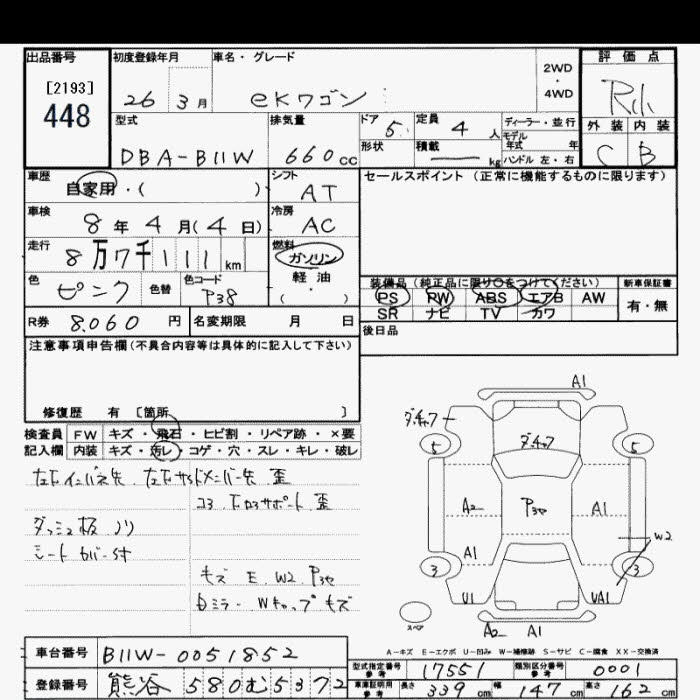 出品番号 初度登録年月 車名・グレード 評価点
[2193]
448
26 3月 eKワゴン
2WD
・
4WD
型式 排気量 ドア 定員 ディーラー・並行
外装 内装
DBA-B11W 660cc 5 4人
モデル年式 年
C B
形状 積載 kg ハンドル 左・右
車歴 シフト セールスポイント (正常に機能するものに限ります)
自家用・( ) AT
車検 冷房
8年4月(4日) AC
走行 燃料
8万7千111km ガソリン
軽油
色 色替 色コード ( )
ピンク P38
装備品(純正品に限り○をつけてください) 新車保証書
PS PW ABS エアB AW 有・無
SR ナビ TV カワ
R券 8.060円 名変期限 月 日 後日品
注意事項申告欄(不具合内容等は具体的に記入して下さい)
修復歴 有 [箇所 ]
検査員 FW キズ・飛石・ヒビ割・リペア跡・×要
記入欄 内装 キズ・汚レ・コゲ・穴・スレ・キレ・破レ
歪
コア 下ロアサポート 歪
ダッシュ板 ノリ
シートカバー付
キズ E W2
ミラー Wキャップ キズ
A1
5 5
A2 A1
W2
A1
3 3
U1 UA1
スペア
A2 A1
A-キズ E-エクボ U-凹み W-補修跡 S-サビ C-腐食 XX-交換済
車台番号 B11W-0051852
型式指定番号 参考 17551 類別区分番号 参考 0001
登録番号 熊谷 580む5372
車庫証明用 参考 長さ 339cm 幅 147cm 高さ 162cm